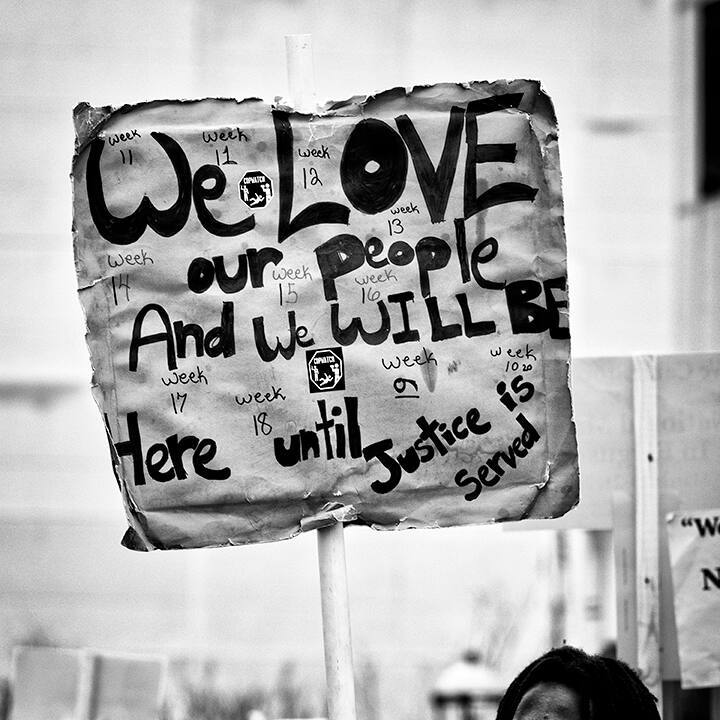 We LOVE
week 11
week 11
week 12
COPWATCH
week 13
our people
week 14
week 15
week 16
And We WILL BE
COPWATCH
week 17
week 18
week 19
week 20
Here until Justice is
Served
"We
N